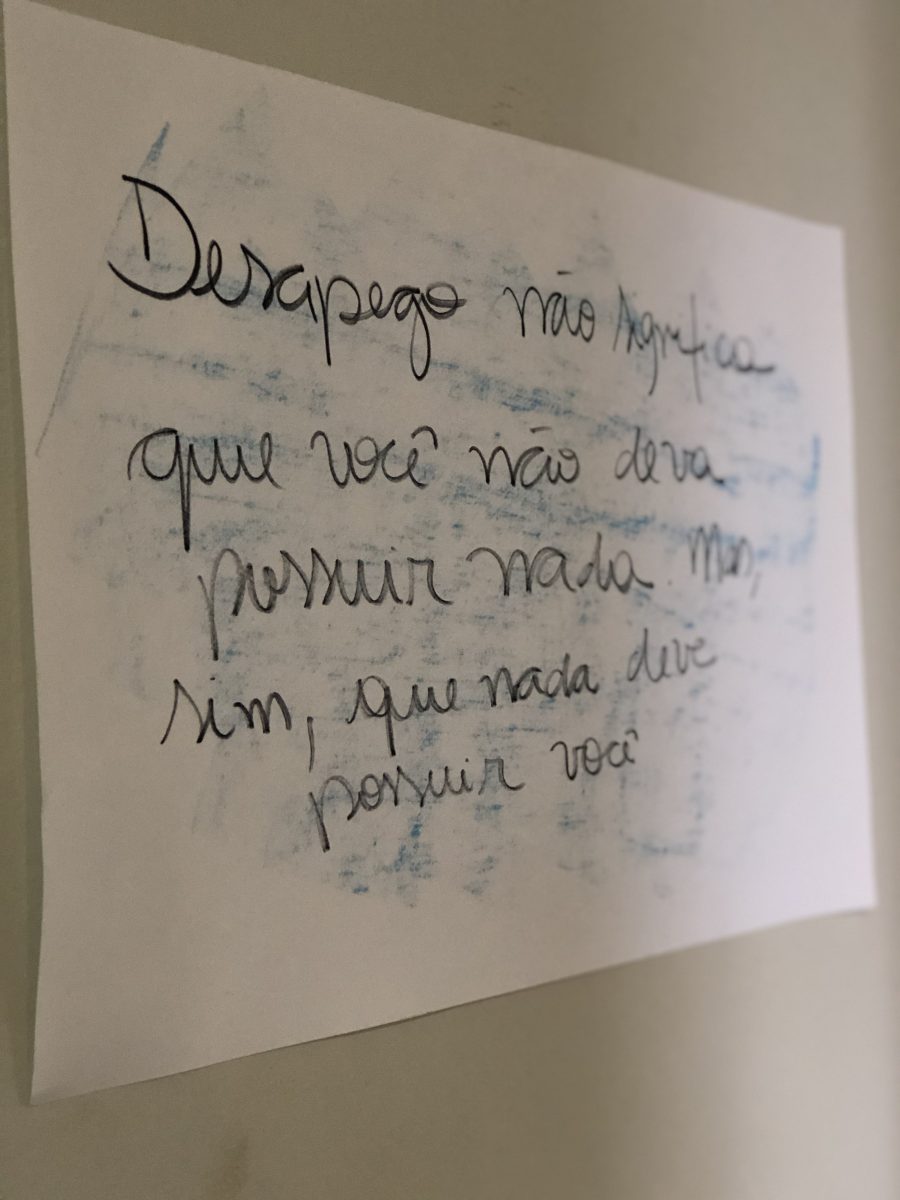 Desapego não significa
que você não deva
possuir nada. Mas,
sim, que nada deve
possuir você